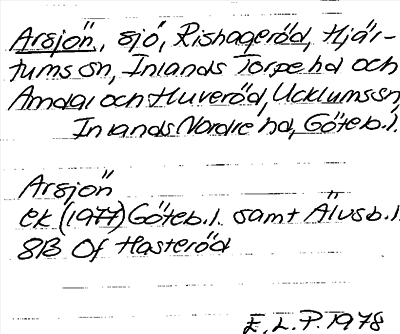 Arsjön, sjö, Rishageröd, Hjär-
tums sn, Inlands Torpe hd och
Amdal och Huveröd, Ucklums sn,
Inlands Nordre hd, Göteb.l.
Arsjön
ek (1977) Göteb.l. samt Älvsb.l.
8B Of Hasteröd
E.L.P 1978